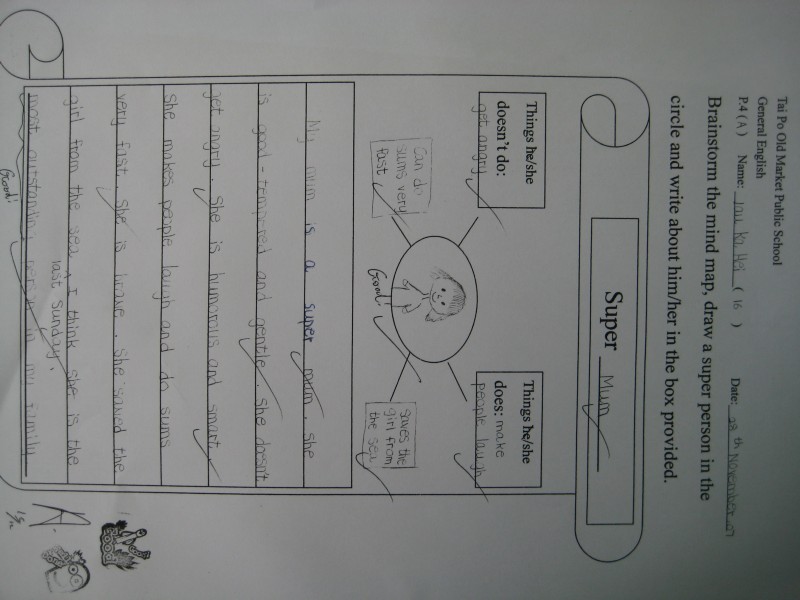 Tai Po Old Market Public School
General English
P.4 ( A ) Name: Lau Ka Hei ( 16 ) Date: 28 th November 07
Brainstorm the mind map, draw a super person in the
circle and write about him/her in the box provided.
Super Mum
Things he/she
doesn't do:
get angry
Things he/she
does: make
people laugh
Can do
sums very
fast
Good!
saves the
girl from
the sea
My mum is a super mum. She
is good-tempered and gentle. She doesn't
get angry. She is humorous and smart.
She makes people laugh and do sums
very fast. She is brave. She saved the
girl from the sea last Sunday. I think she is the
most outstanding person in my family.
Good!
A
GOOD